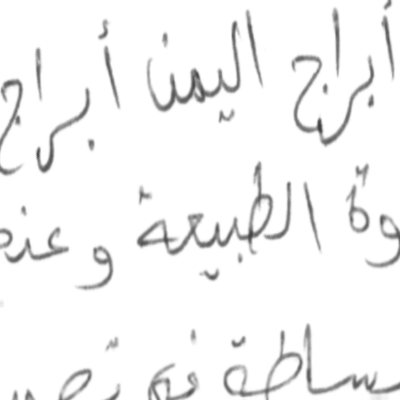 أبراج اليمن أبراج
وة الطبيعة وعنه
ساطة في تص